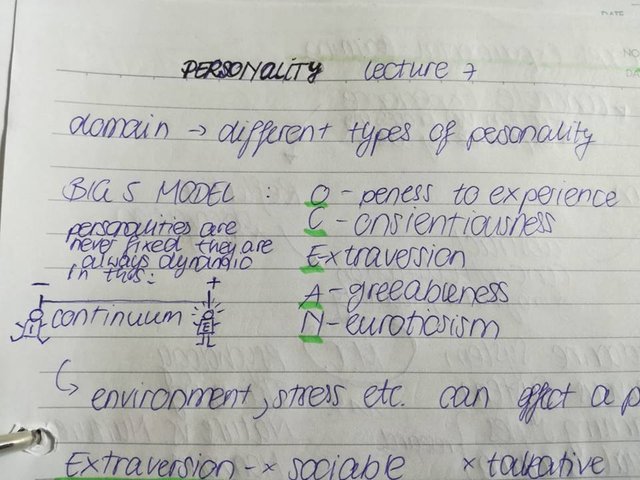 DATE
NO
DA
PERSONALITY Lecture 7
domain → different types of pesonality
BIG 5 MODEL : O - peness to experience
C - onsientiousness
personalities are
never fixed they are
always dynamic
in this:
Extraversion
A - greeableness
N - euroticism
- +
I continuum E
↳ environment, stress etc. can effect a p
Extraversion - × sociable × talkative